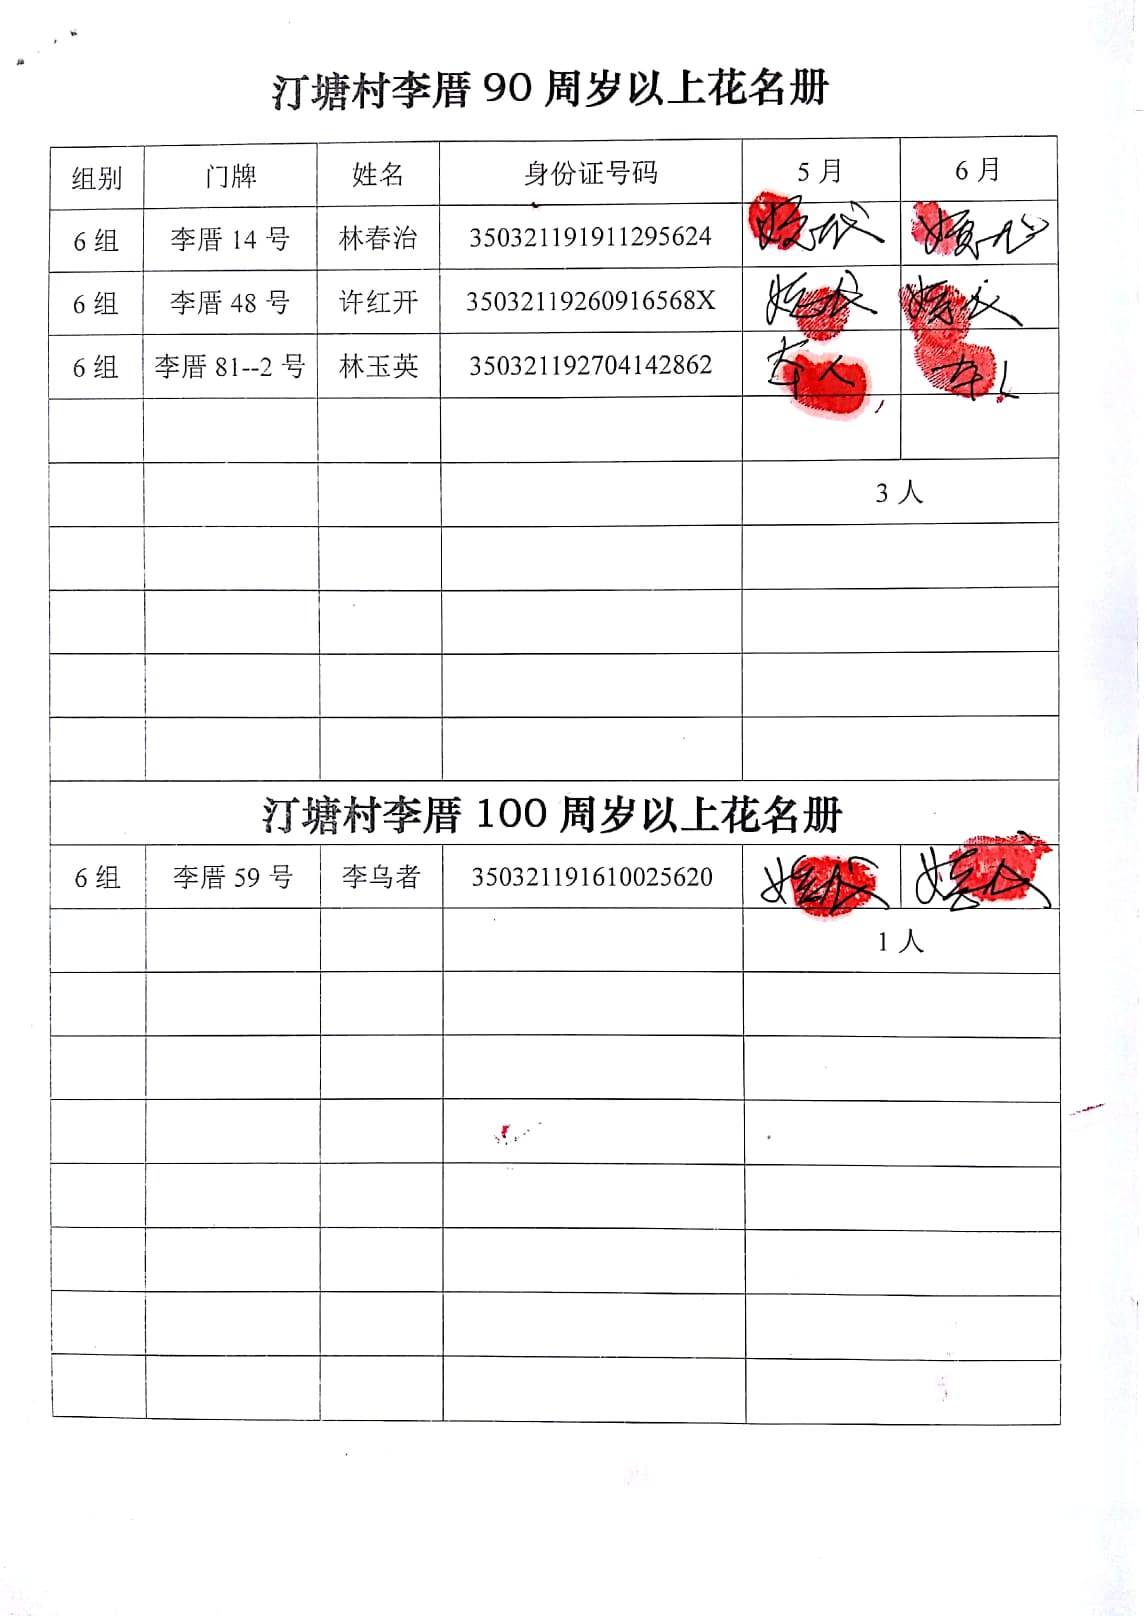 汀塘村李厝 90 周岁以上花名册
组别 门牌 姓名 身份证号码 5 月 6 月
6 组 李厝 14 号 林春治 350321191911295624
6 组 李厝 48 号 许红开 35032119260916568X
6 组 李厝 81--2 号 林玉英 350321192704142862 本人 本人
3 人
汀塘村李厝 100 周岁以上花名册
6 组 李厝 59 号 李乌者 350321191610025620
1 人